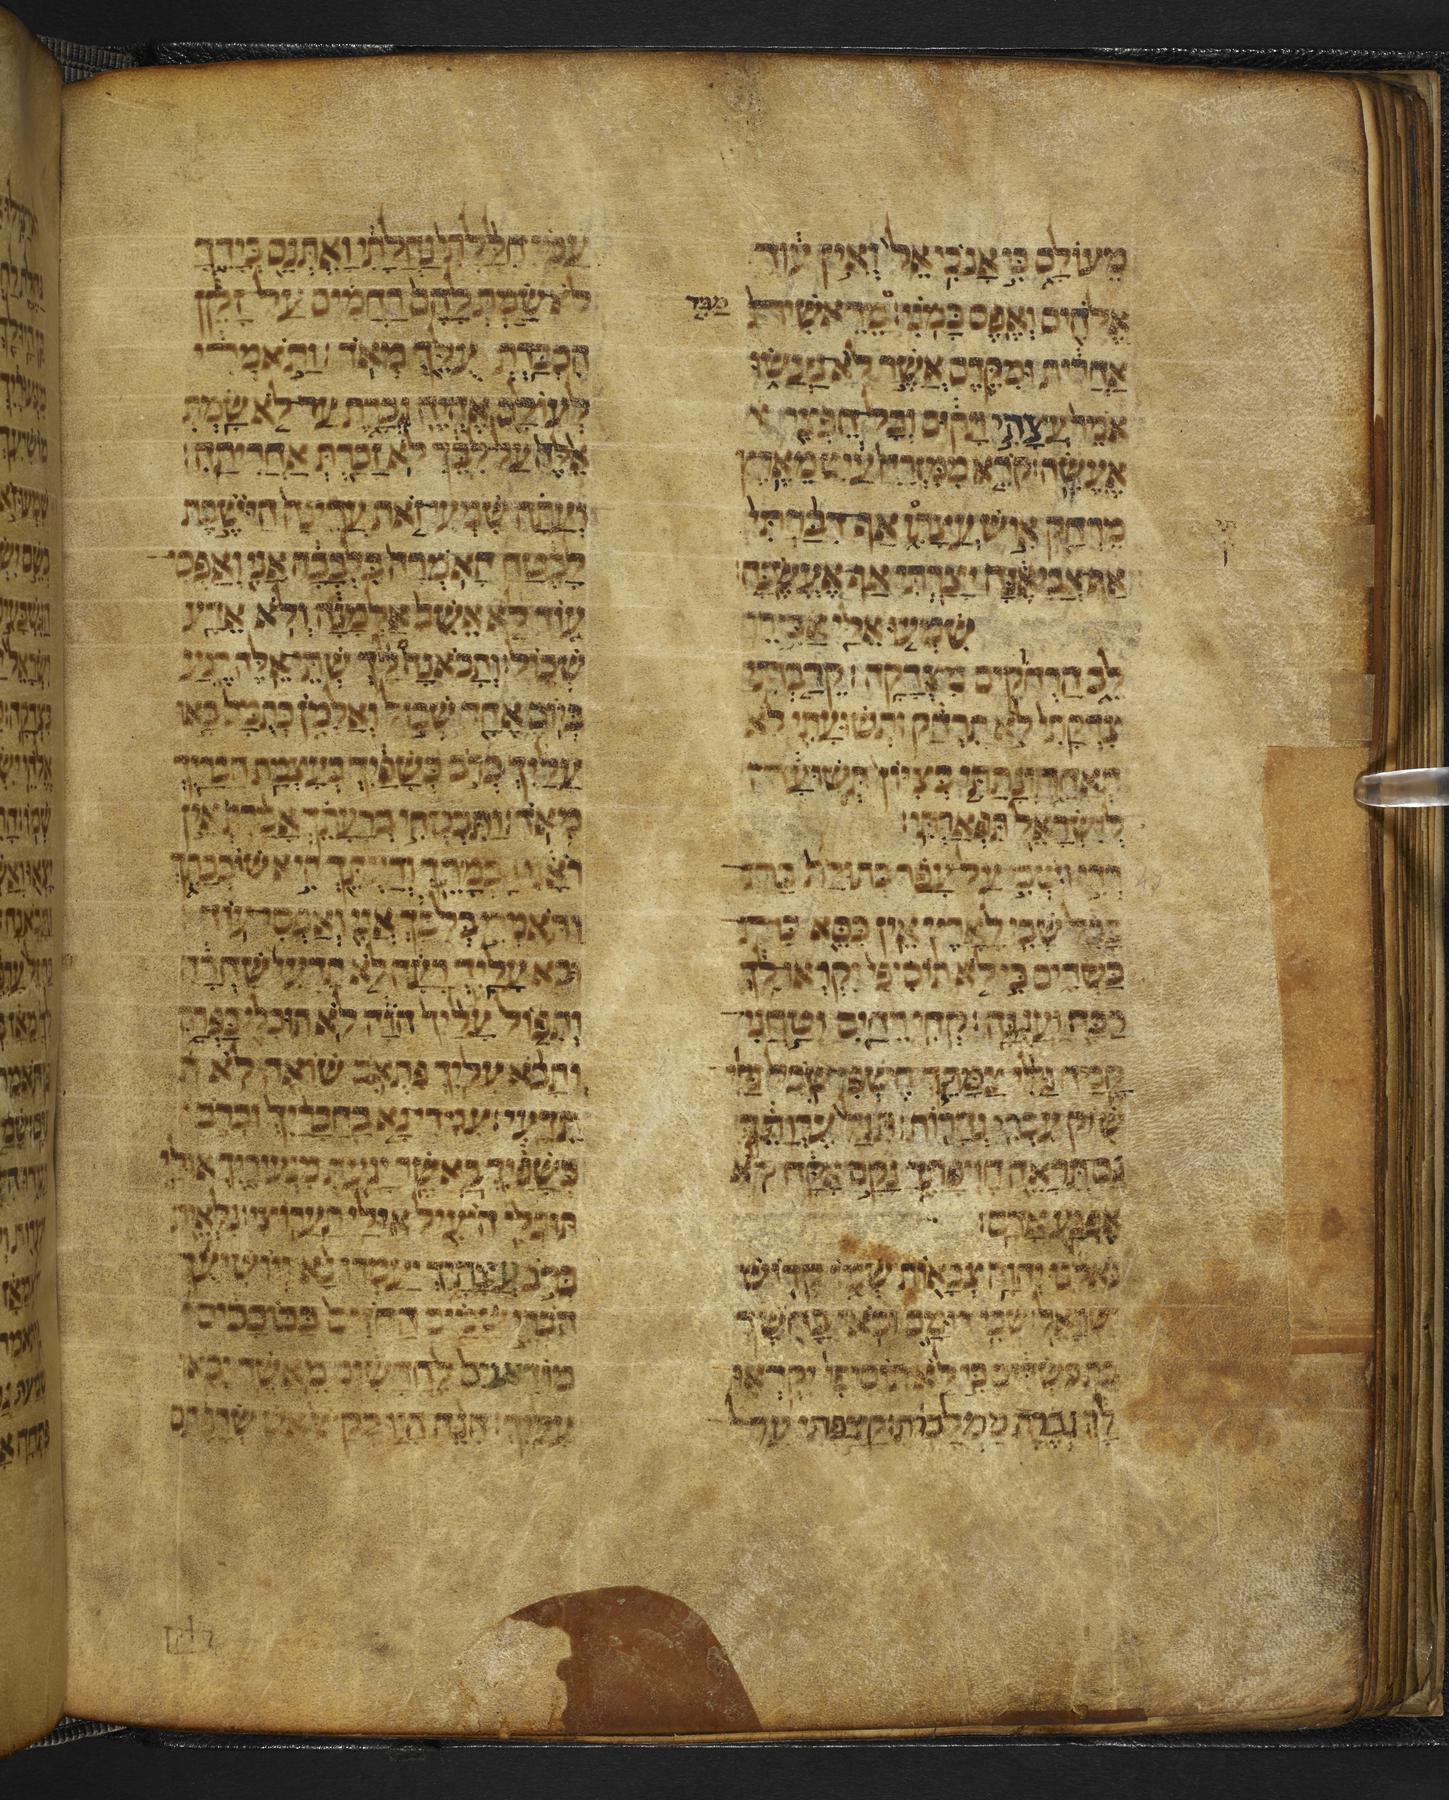 מֵעוֹלָם כִּי אָנֹכִי אֵל וְאֵין עוֹד
אֱלֹהִים וְאֶפֶס כָּמֹנִי׃ מֵרֵאשִׁית
מגיד
אַחֲרִית וּמִקֶּדֶם אֲשֶׁר לֹא נַעֲשׂוּ
אֹמֵר עֲצָתִי תָקוּם וְכָל חֶפְצִי א
אֶעֱשֶׂה׃ קֹרֵא מִמִּזְרָח עַיִט מֵאֶרֶץ
מֶרְחָק אִישׁ עֲצָתוֹ אַף דִּבַּרְתִּי
אַף אֲבִיאֶנָּה יָצַרְתִּי אַף אֶעֱשֶׂנָּה׃
שִׁמְעוּ אֵלַי אַבִּירֵי
לֵב הָרְחֹקִים מִצְּדָקָה׃ קֵרַבְתִּי
צִדְקָתִי לֹא תִרְחָק וּתְשׁוּעָתִי לֹא
תְאַחֵר וְנָתַתִּי בְצִיּוֹן תְּשׁוּעָה
לְיִשְׂרָאֵל תִּפְאַרְתִּי׃
רְדִי וּשְׁבִי עַל עָפָר בְּתוּלַת בַּת
בָּבֶל שְׁבִי לָאָרֶץ אֵין כִּסֵּא בַּת
כַּשְׂדִּים כִּי לֹא תוֹסִיפִי יִקְרְאוּ לָךְ
רַכָּה וַעֲנֻגָּה׃ קְחִי רֵחַיִם וְטַחֲנִי
קָמַח גַּלִּי צַמָּתֵךְ חֶשְׂפִּי שֹׁבֶל גַּלִּי
שׁוֹק עִבְרִי נְהָרוֹת׃ תִּגָּל עֶרְוָתֵךְ
גַּם תֵּרָאֶה חֶרְפָּתֵךְ נָקָם אֶקָּח לֹא
אֶפְגַּע אָדָם׃
גֹּאֲלֵנוּ יְהוָה צְבָאוֹת שְׁמוֹ קְדוֹשׁ
יִשְׂרָאֵל׃ שְׁבִי דוּמָם וּבֹאִי בַחֹשֶׁךְ
בַּת כַּשְׂדִּים כִּי לֹא תוֹסִיפִי יִקְרְאוּ
לָךְ גְּבֶרֶת מַמְלָכוֹת׃ קָצַפְתִּי עַל
עַמִּי חִלַּלְתִּי נַחֲלָתִי וָאֶתְּנֵם בְּיָדֵךְ
לֹא שַׂמְתְּ לָהֶם רַחֲמִים עַל זָקֵן
הִכְבַּדְתְּ עֻלֵּךְ מְאֹד׃ וַתֹּאמְרִי
לְעוֹלָם אֶהְיֶה גְבָרֶת עַד לֹא שַׂמְתְּ
אֵלֶּה עַל לִבֵּךְ לֹא זָכַרְתְּ אַחֲרִיתָהּ׃
וְעַתָּה שִׁמְעִי זֹאת עֲדִינָה הַיּוֹשֶׁבֶת
לָבֶטַח הָאֹמְרָה בִּלְבָבָהּ אֲנִי וְאַפְסִי
עוֹד לֹא אֵשֵׁב אַלְמָנָה וְלֹא אֵדַע
שְׁכוֹל׃ וְתָבֹאנָה לָּךְ שְׁתֵּי אֵלֶּה רֶגַע
בְּיוֹם אֶחָד שְׁכוֹל וְאַלְמֹן כְּתֻמָּם בָּאוּ
עָלַיִךְ בְּרֹב כְּשָׁפַיִךְ בְּעָצְמַת חֲבָרַיִךְ
מְאֹד׃ וַתִּבְטְחִי בְרָעָתֵךְ אָמַרְתְּ אֵין
רֹאָנִי חָכְמָתֵךְ וְדַעְתֵּךְ הִיא שׁוֹבְבָתֵךְ
וַתֹּאמְרִי בְלִבֵּךְ אֲנִי וְאַפְסִי עוֹד׃
וּבָא עָלַיִךְ רָעָה לֹא תֵדְעִי שַׁחְרָהּ
וְתִפּוֹל עָלַיִךְ הֹוָה לֹא תוּכְלִי כַּפְּרָהּ
וְתָבֹא עָלַיִךְ פִּתְאֹם שׁוֹאָה לֹא ת
תֵדָעִי׃ עִמְדִי נָא בַחֲבָרַיִךְ וּבְרֹב
כְּשָׁפַיִךְ בַּאֲשֶׁר יָגַעַתְּ מִנְּעוּרָיִךְ אוּלַי
תּוּכְלִי הוֹעִיל אוּלַי תַּעֲרוֹצִי׃ נִלְאֵית
בְּרֹב עֲצָתָיִךְ יַעַמְדוּ נָא וְיוֹשִׁיעֻךְ
הֹבְרֵו שָׁמַיִם הַחֹזִים בַּכּוֹכָבִים
מוֹדִיעִים לֶחֳדָשִׁים מֵאֲשֶׁר יָבֹאוּ
עָלָיִךְ׃ הִנֵּה הָיוּ כְקַשׁ אֵשׁ שְׂרָפָתַם